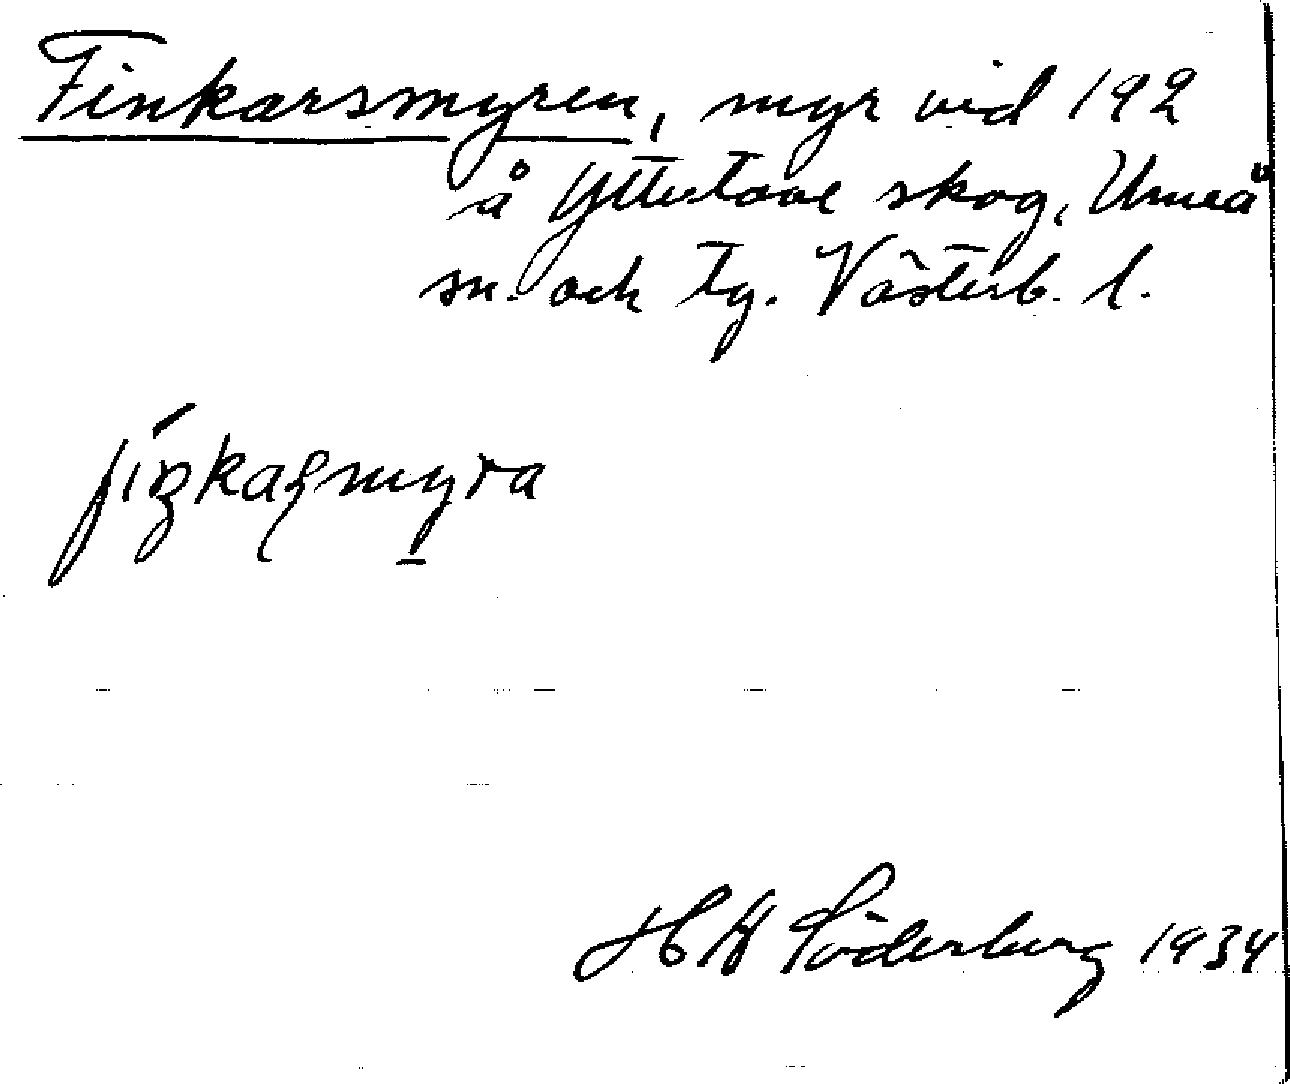 Finkarsmyren, myr vid 192
å Yttertavle skog, Umeå
sn. och tg. Västerb. l.
fiŋkaʂmyra
H W Söderberg 1934